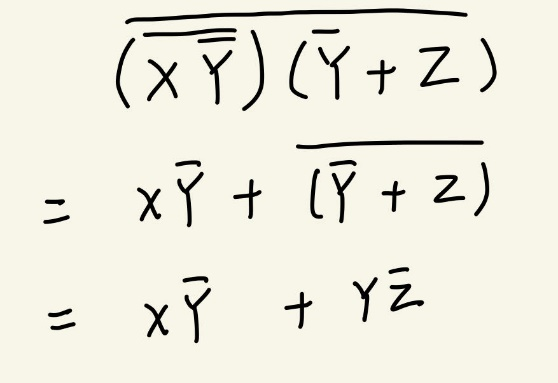 $\overline{(\overline{X\overline{Y}})(\overline{Y}+Z)}$
$= X\overline{Y} + \overline{(\overline{Y}+Z)}$
$= X\overline{Y} + Y\overline{Z}$